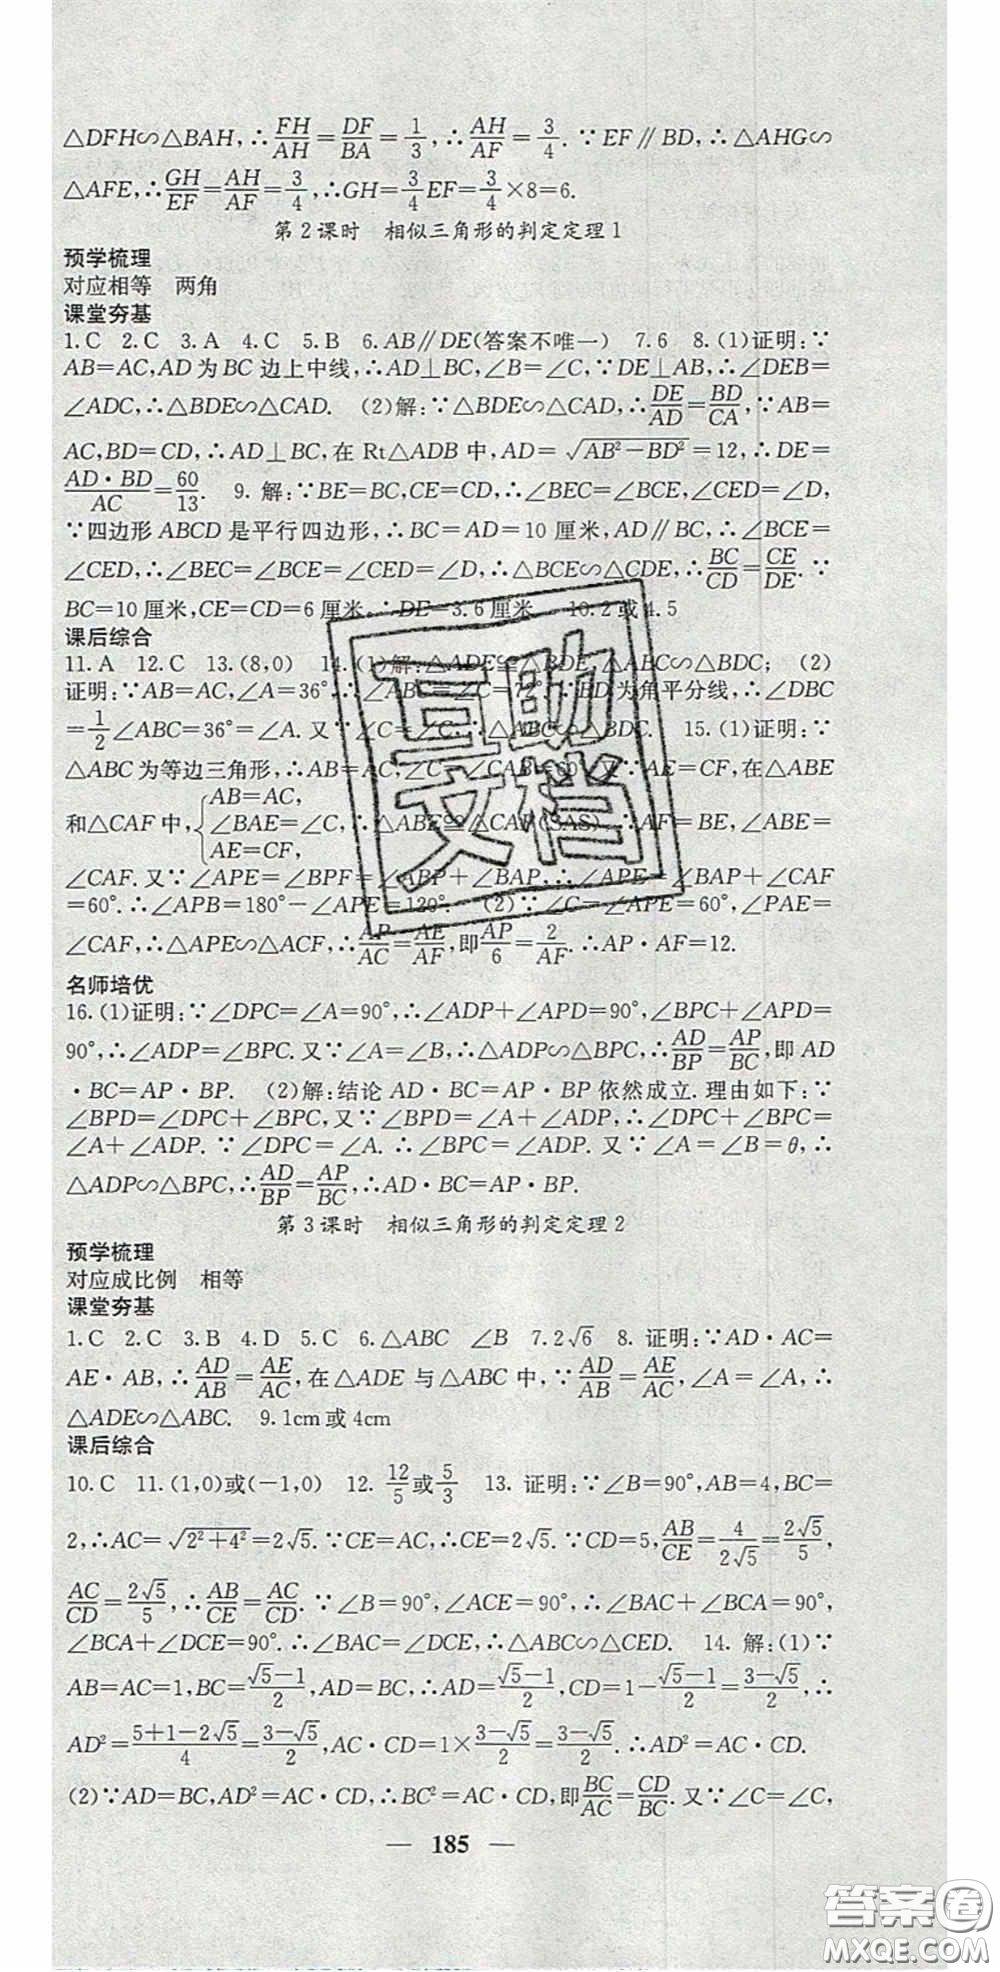 △DFH∽△BAH,∴FH/AH=DF/BA=1/3,∴AH/AF=3/4.∵EF∥BD,∴△AHG∽
△AFE,∴GH/EF=AH/AF=3/4,∴GH=3/4EF=3/4×8=6.
第2课时 相似三角形的判定定理1
预学梳理
对应相等 两角
课堂夯基
1.C 2.C 3.A 4.C 5.B 6.AB∥DE(答案不唯一) 7.6 8.(1)证明:∵
AB=AC,AD为BC边上中线,∴AD⊥BC,∠B=∠C,∵DE⊥AB,∴∠DEB=
∠ADC,∴△BDE∽△CAD. (2)解:∵△BDE∽△CAD,∴DE/AD=BD/CA,∵AB=
AC,BD=CD,∴AD⊥BC,在Rt△ADB中,AD=√(AB²-BD²)=12,∴DE=
AD·BD/AC=60/13. 9.解:∵BE=BC,CE=CD,∴∠BEC=∠BCE,∠CED=∠D,
∵四边形ABCD是平行四边形,∴BC=AD=10厘米,AD∥BC,∴∠BCE=
∠CED,∴∠BEC=∠BCE=∠CED=∠D,∴△BCE∽△CDE,∴BC/CD=CE/DE.∵
BC=10厘米,CE=CD=6厘米,∴DE=3.6厘米 10.2或4.5
课后综合
11.A 12.C 13.(8,0) 14.(1)解:△ADE≌△BDE,△ABC∽△BDC; (2)
证明:∵AB=AC,∠A=36°,∴∠ABC=∠C=72°.∵BD为角平分线,∴∠DBC
=1/2∠ABC=36°=∠A.又∵∠C=∠C,∴△ABC∽△BDC. 15.(1)证明:∵
△ABC为等边三角形,∴AB=AC,∠C=∠CAB=60°.又∵AE=CF,在△ABE
和△CAF中,{AB=AC,
∠BAE=∠C,∴△ABE≌△CAF(SAS),∴AF=BE,∠ABE=
AE=CF,
∠CAF.又∵∠APE=∠BPF=∠ABP+∠BAP,∴∠APE=∠BAP+∠CAF
=60°.∴∠APB=180°-∠APE=120°. (2)∵∠C=∠APE=60°,∠PAE=
∠CAF,∴△APE∽△ACF,∴AP/AC=AE/AF,即AP/6=2/AF.∴AP·AF=12.
名师培优
16.(1)证明:∵∠DPC=∠A=90°,∴∠ADP+∠APD=90°,∠BPC+∠APD=
90°,∴∠ADP=∠BPC.又∵∠A=∠B,∴△ADP∽△BPC,∴AD/BP=AP/BC,即AD
·BC=AP·BP. (2)解:结论AD·BC=AP·BP依然成立.理由如下:∵
∠BPD=∠DPC+∠BPC,又∵∠BPD=∠A+∠ADP,∴∠DPC+∠BPC=
∠A+∠ADP.∵∠DPC=∠A.∴∠BPC=∠ADP.又∵∠A=∠B=θ,∴
△ADP∽△BPC,∴AD/BP=AP/BC,∴AD·BC=AP·BP.
第3课时 相似三角形的判定定理2
预学梳理
对应成比例 相等
课堂夯基
1.C 2.C 3.B 4.D 5.C 6.△ABC ∠B 7.2√6 8.证明:∵AD·AC=
AE·AB,∴AD/AB=AE/AC,在△ADE与△ABC中,∵AD/AB=AE/AC,∠A=∠A,∴
△ADE∽△ABC. 9.1cm或4cm
课后综合
10.C 11.(1,0)或(-1,0) 12.12/5或5/3 13.证明:∵∠B=90°,AB=4,BC=
2,∴AC=√(2²+4²)=2√5.∵CE=AC,∴CE=2√5.∵CD=5,AB/CE=4/2√5=2√5/5,
AC/CD=2√5/5,∴AB/CE=AC/CD.∵∠B=90°,∠ACE=90°,∴∠BAC+∠BCA=90°,
∠BCA+∠DCE=90°.∴∠BAC=∠DCE,∴△ABC∽△CED. 14.解:(1)∵
AB=AC=1,BC=(√5-1)/2,AD=BC,∴AD=(√5-1)/2,CD=1-(√5-1)/2=(3-√5)/2,∴
AD²=(5+1-2√5)/4=(3-√5)/2,AC·CD=1×(3-√5)/2=(3-√5)/2.∴AD²=AC·CD.
(2)∵AD=BC,AD²=AC·CD,∴BC²=AC·CD,即BC/AC=CD/BC.又∵∠C=∠C,
— 185 —
互助
文档
答案圈
MXQE.COM